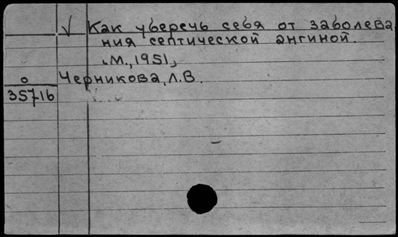 √ Как уберечь себя от заболева
ния септической ангиной.
(М., 1951)
О Черникова, Л.В.
35716